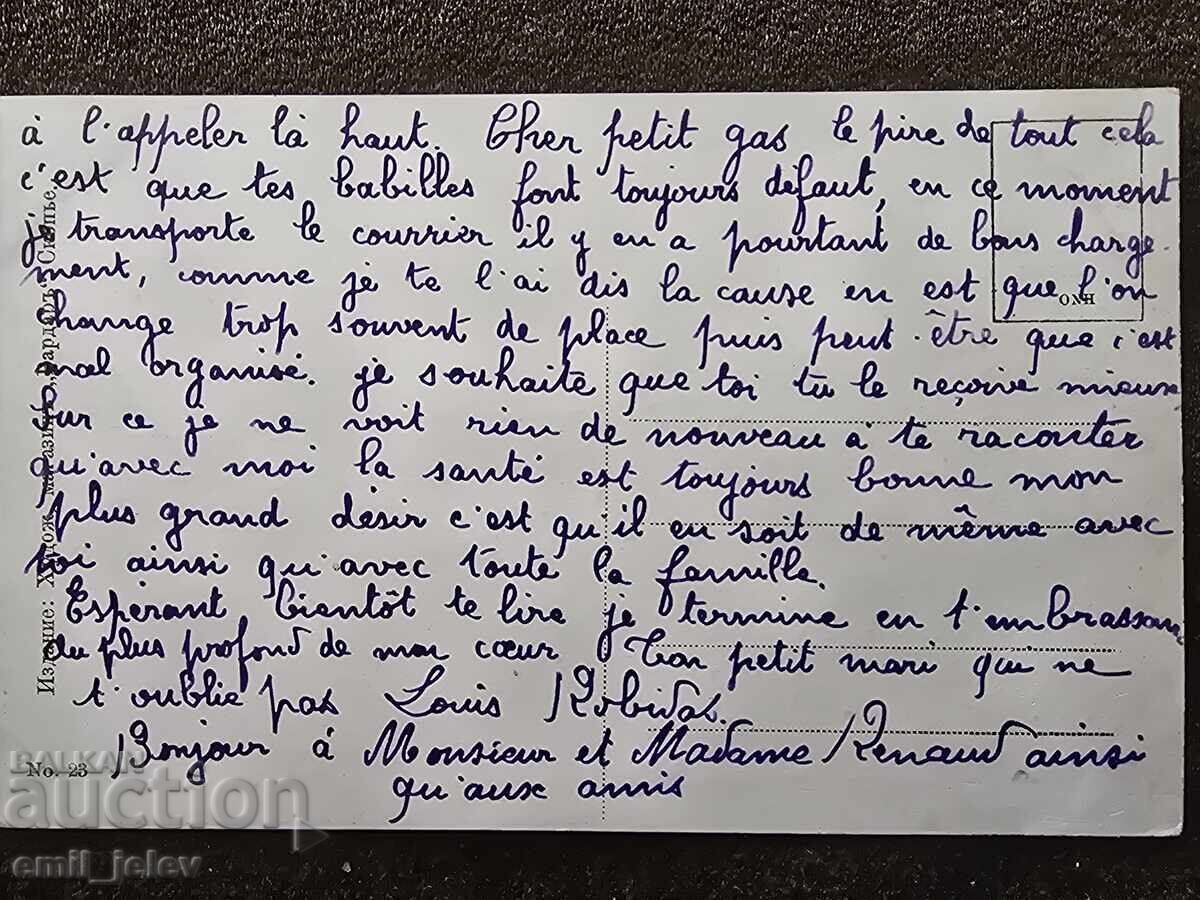 à l'appeler là haut. Cher petit gas le pire de tout cela
c'est que tes babilles font toujours défaut, en ce moment
je transporte le courrier il y en a pourtant de bons charge-
ment, comme je te l'ai dis la cause en est que l'on
change trop souvent de place puis peut être que c'est
mal organisé. je souhaite que toi tu le reçoive mieux
sur ce je ne voit rien de nouveau à te raconter
qu'avec moi la santé est toujours bonne mon
plus grand désir c'est qu'il en soit de même avec
toi ainsi qu'avec toute la famille.
Espérant bientôt te lire je termine en t'embrassant
du plus profond de mon cœur Ton petit mari qui ne
t'oublie pas Louis Robidas.
Bonjour à Monsieur et Madame Renaud ainsi
qu'aux amis
Издание: Худож. магазинъ „Вардаръ" Скопье.
No. 23
BALKAN
auction
emil_jelev